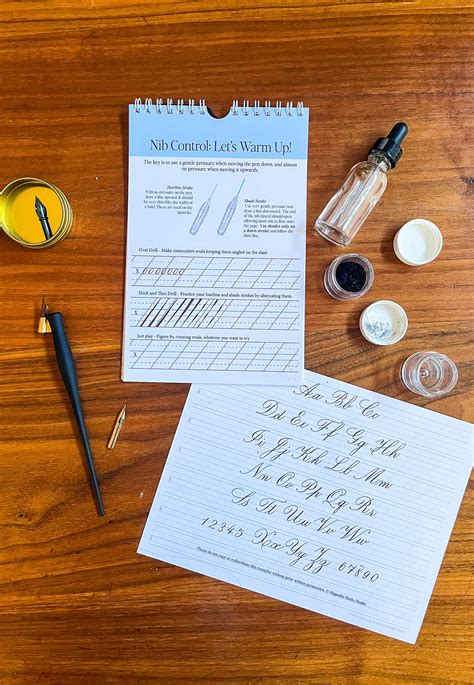 Nib Control: Let's Warm Up!
The key is to use a gentle pressure when moving the pen down, and almost
no pressure when moving it upwards.
Hairline Stroke
With no pressure on the pen,
draw a line upward. It should
be very thin (like the width of
a hair). These are used on the
upstroke.
Shade Stroke
Use very gentle pressure and
draw a line downward. The end
of the nib (tines) should open
allowing more ink to flow onto
the page. Use shades only on
a down stroke and follow the
slant line.
Oval Drill - Make consecutive ovals keeping them angled on the slant
X
Thick and Thin Drill - Practice your hairline and shade strokes by alternating them.
X
Just play - Figure 8s, running ovals, whatever you want to try
X
Aa Bb Cc
Dd Ee Ff Gg Hh
Ii Jj Kk Ll Mm
Nn Oo Pp Qq Rr
Ss Tt Uu Vv Ww
12345 Xx Yy Zz 67890
Please do not copy or redistribute this exemplar without prior written permission. ©